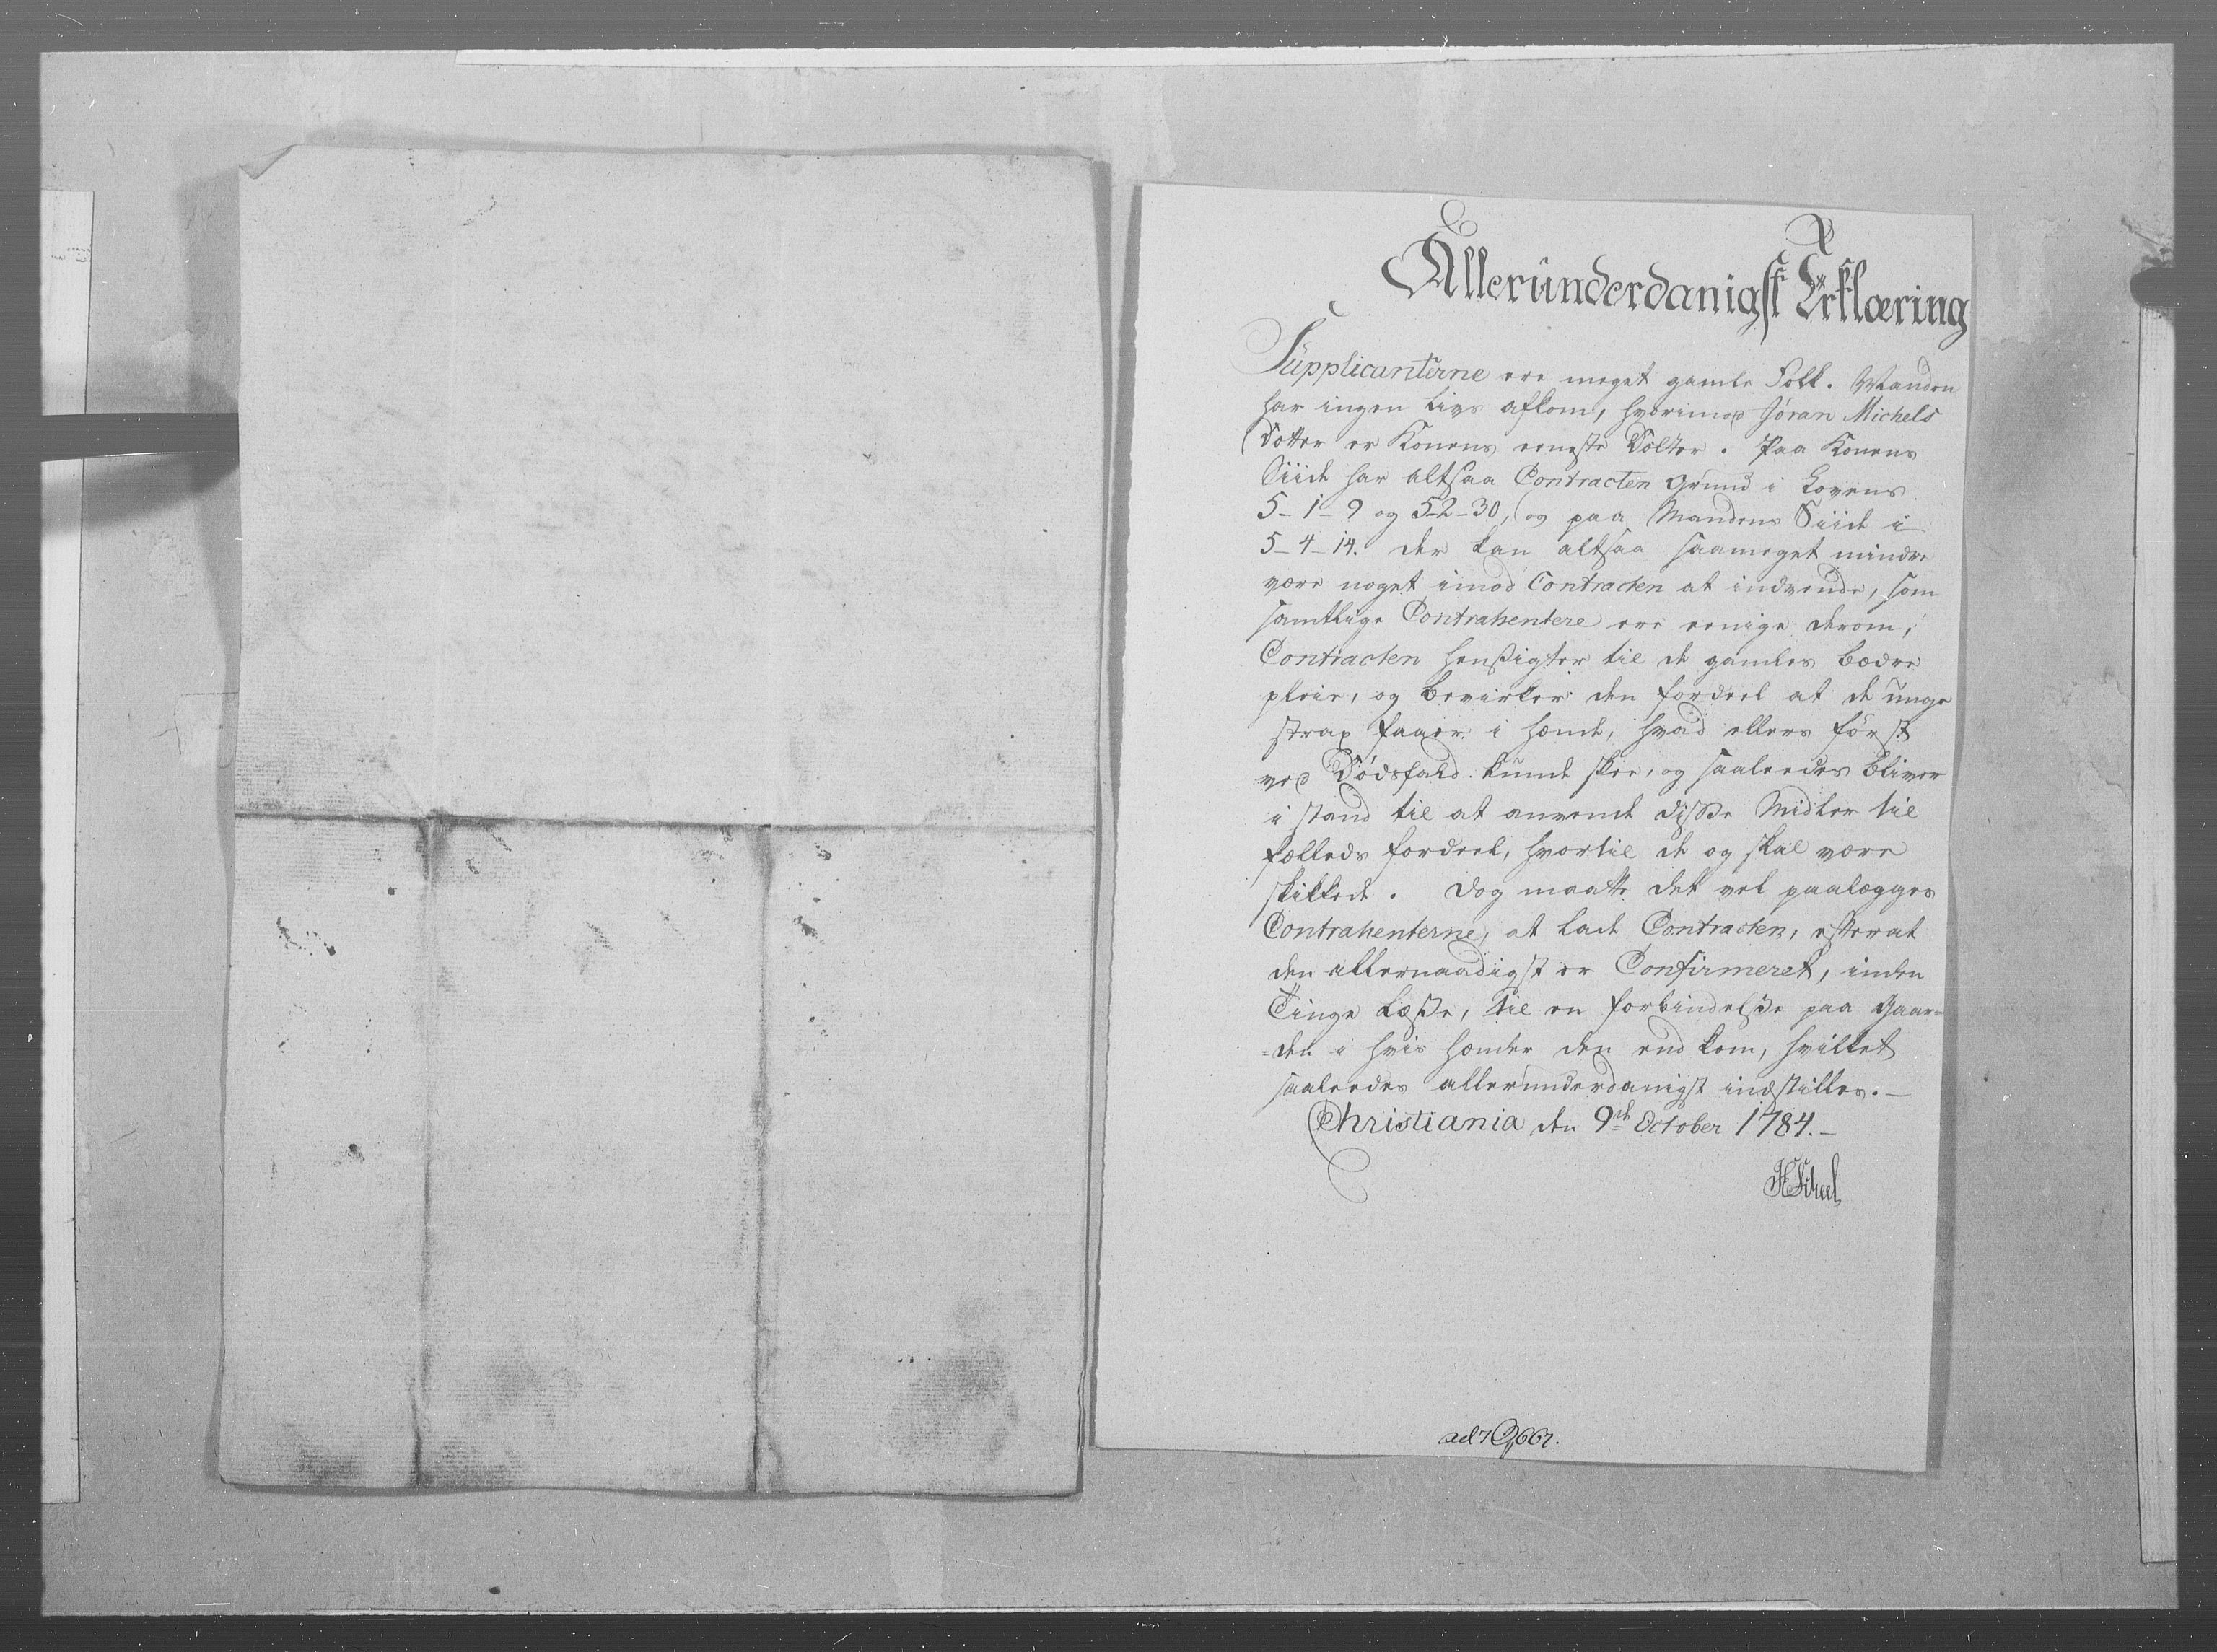 Alleründerdanigst Erklæring
Supplicanterne ere meget gamle Folk. Manden
har ingen Livs afkom, hvorimod Jöran Michels
Dotter er Konens eeneste Dotter. Paa Konens
Siide har altsaa Contracten Grund i Lovens
5-1-9 og 5-2-30, og paa Mandens Siide i
5-4-14. der kan altsaa saameget mindre
være noget imod Contracten at indvende, som
samtlige Contrahentere ere eenige derom;
Contracten hensigter til de gamles bædre
pleie, og bevirker den fordeel at de unge
strax faaer i hænde, hvad ellers först
ved Dödsfald kunde skee, og saaleedes bliver
i stand til at anvende disse Midler til
fælleds fordeel, hvortil de og skal være
skikkede. dog maatte det vel paalægges
Contrahenterne, at lade Contracten, efterat
den allernaadigst er Confirmeret, inden
Tinge læse, til en forbindelse paa Gaar=
=den i hvis hænder den end kom, hvilket
saaleedes allerunderdanigst indstilles.-
Christiania den 9de October 1784.-